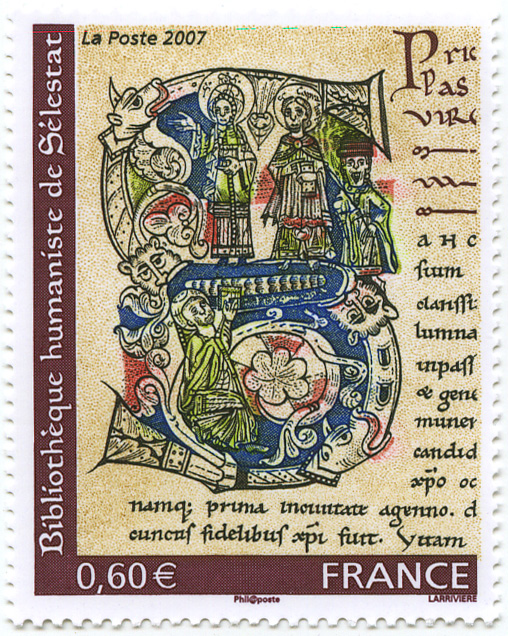 La Poste 2007
Bibliothèque humaniste de Sélestat
Pric
las
VIRC
A H C
suum
clarissi
lumna
inpass
& gene
muner
candid
xp̅o oc
namq; prima iuuuitate agenno. d
cunctis fidelibus xp̅i fuit. Vitam
0,60 €
FRANCE
Phil@poste
LARRIVIÈRE